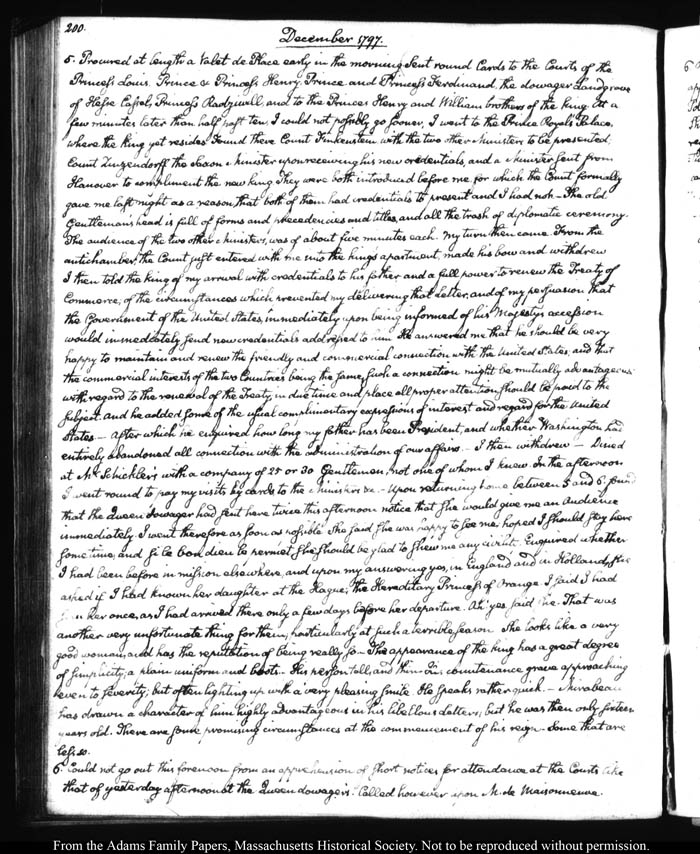 200.
December 1797.
5. Procured at length a Valet de Place early in the morning. Sent round Cards to the Courts of the
Princess Louis. Prince & Princess Henry. Prince and Princess Ferdinand, the dowager Landgrave
of Hesse Cassel, Princess Radzivill, and to the Princes Henry and William brothers of the king. At a
few minutes later than half past ten, I could not possibly go sooner, I went to the Prince Royal's Palace,
where the King yet resides. Found there Count Finkenstein with the two other Ministers to be presented;
Count Zinzendorff the Saxon Minister upon receiving his new credentials, and a Minister sent from
Hanover to compliment the new king. They were both introduced before me, for which the Count formally
gave me last night as a reason, that both of them had credentials to present and I had not. — The old
Gentleman's head is full of forms and precedencies and titles, and all the trash of diplomatic ceremony.
The audience of the two other Ministers, was of about five minutes each. My turn then came. From the
antichamber, the Count just entered with me into the king's apartment, made his bow and withdrew
I then told the King of my arrival with credentials to his father and a full power to renew the Treaty of
Commerce; of the circumstances which prevented my delivering that letter, and of my persuasion that
the Government of the United States, immediately upon being informed of his Majesty's accession
would immediately send new credentials addressed to him. He answered me that he should be very
happy to maintain and renew the friendly and commercial connection with the United States, and that
the commercial interests of the two Countries being the same, such a connection might be mutually advantageous
with regard to the renewal of the Treaty, in due time and place all proper attention should be paid to the
subject. And he added some of the usual complimentary expressions of interest and regard for the United
States — After which he enquired how long my father has been President, and whether Washington had
entirely abandoned all connection with the administration of our affairs. — I then withdrew — Dined
at Mr. Schickler's with a company of 25 or 30 Gentlemen, not one of whom I knew. In the afternoon
I went round to pay my visits by cards to the Ministers &c — Upon returning home between 5 and 6. found
that the Queen Dowager had sent here twice this afternoon notice that she would give me an Audience
immediately. I went therefore as soon as possible. She said she was happy to see me; hoped I should stay here
some time, and si le bon dieu le permet she should be glad to shew me any civility. Enquired whether
I had been before in mission elsewhere, and upon my answering yes, in England and in Holland, she
asked if I had known her daughter at the Hague; the Hereditary Princess of Orange. I said I had
seen her once, as I had arrived there only a few days before her departure. Ah! yes said she. That was
another very unfortunate thing for them, particularly at such a terrible season. She looks like a very
good woman, and has the reputation of being really so — The appearance of the king has a great degree
of simplicity; a plain uniform and boots. His person tall, and thin. His countenance grave approaching
even to severity; but often lighting up with a very pleasing smile. He speaks rather quick. — Mirabeau
has drawn a character of him highly advantageous in his libellous letters; but he was then only sixteen
years old. There are some promising circumstances at the commencement of his reign. Some that are
less so.
6. Could not go out this forenoon from an apprehension of short notices for attendance at the Courts like
that of yesterday afternoon at the Queen dowager's. Called however upon M. de Maisonneuve.
From the Adams Family Papers, Massachusetts Historical Society. Not to be reproduced without permission.